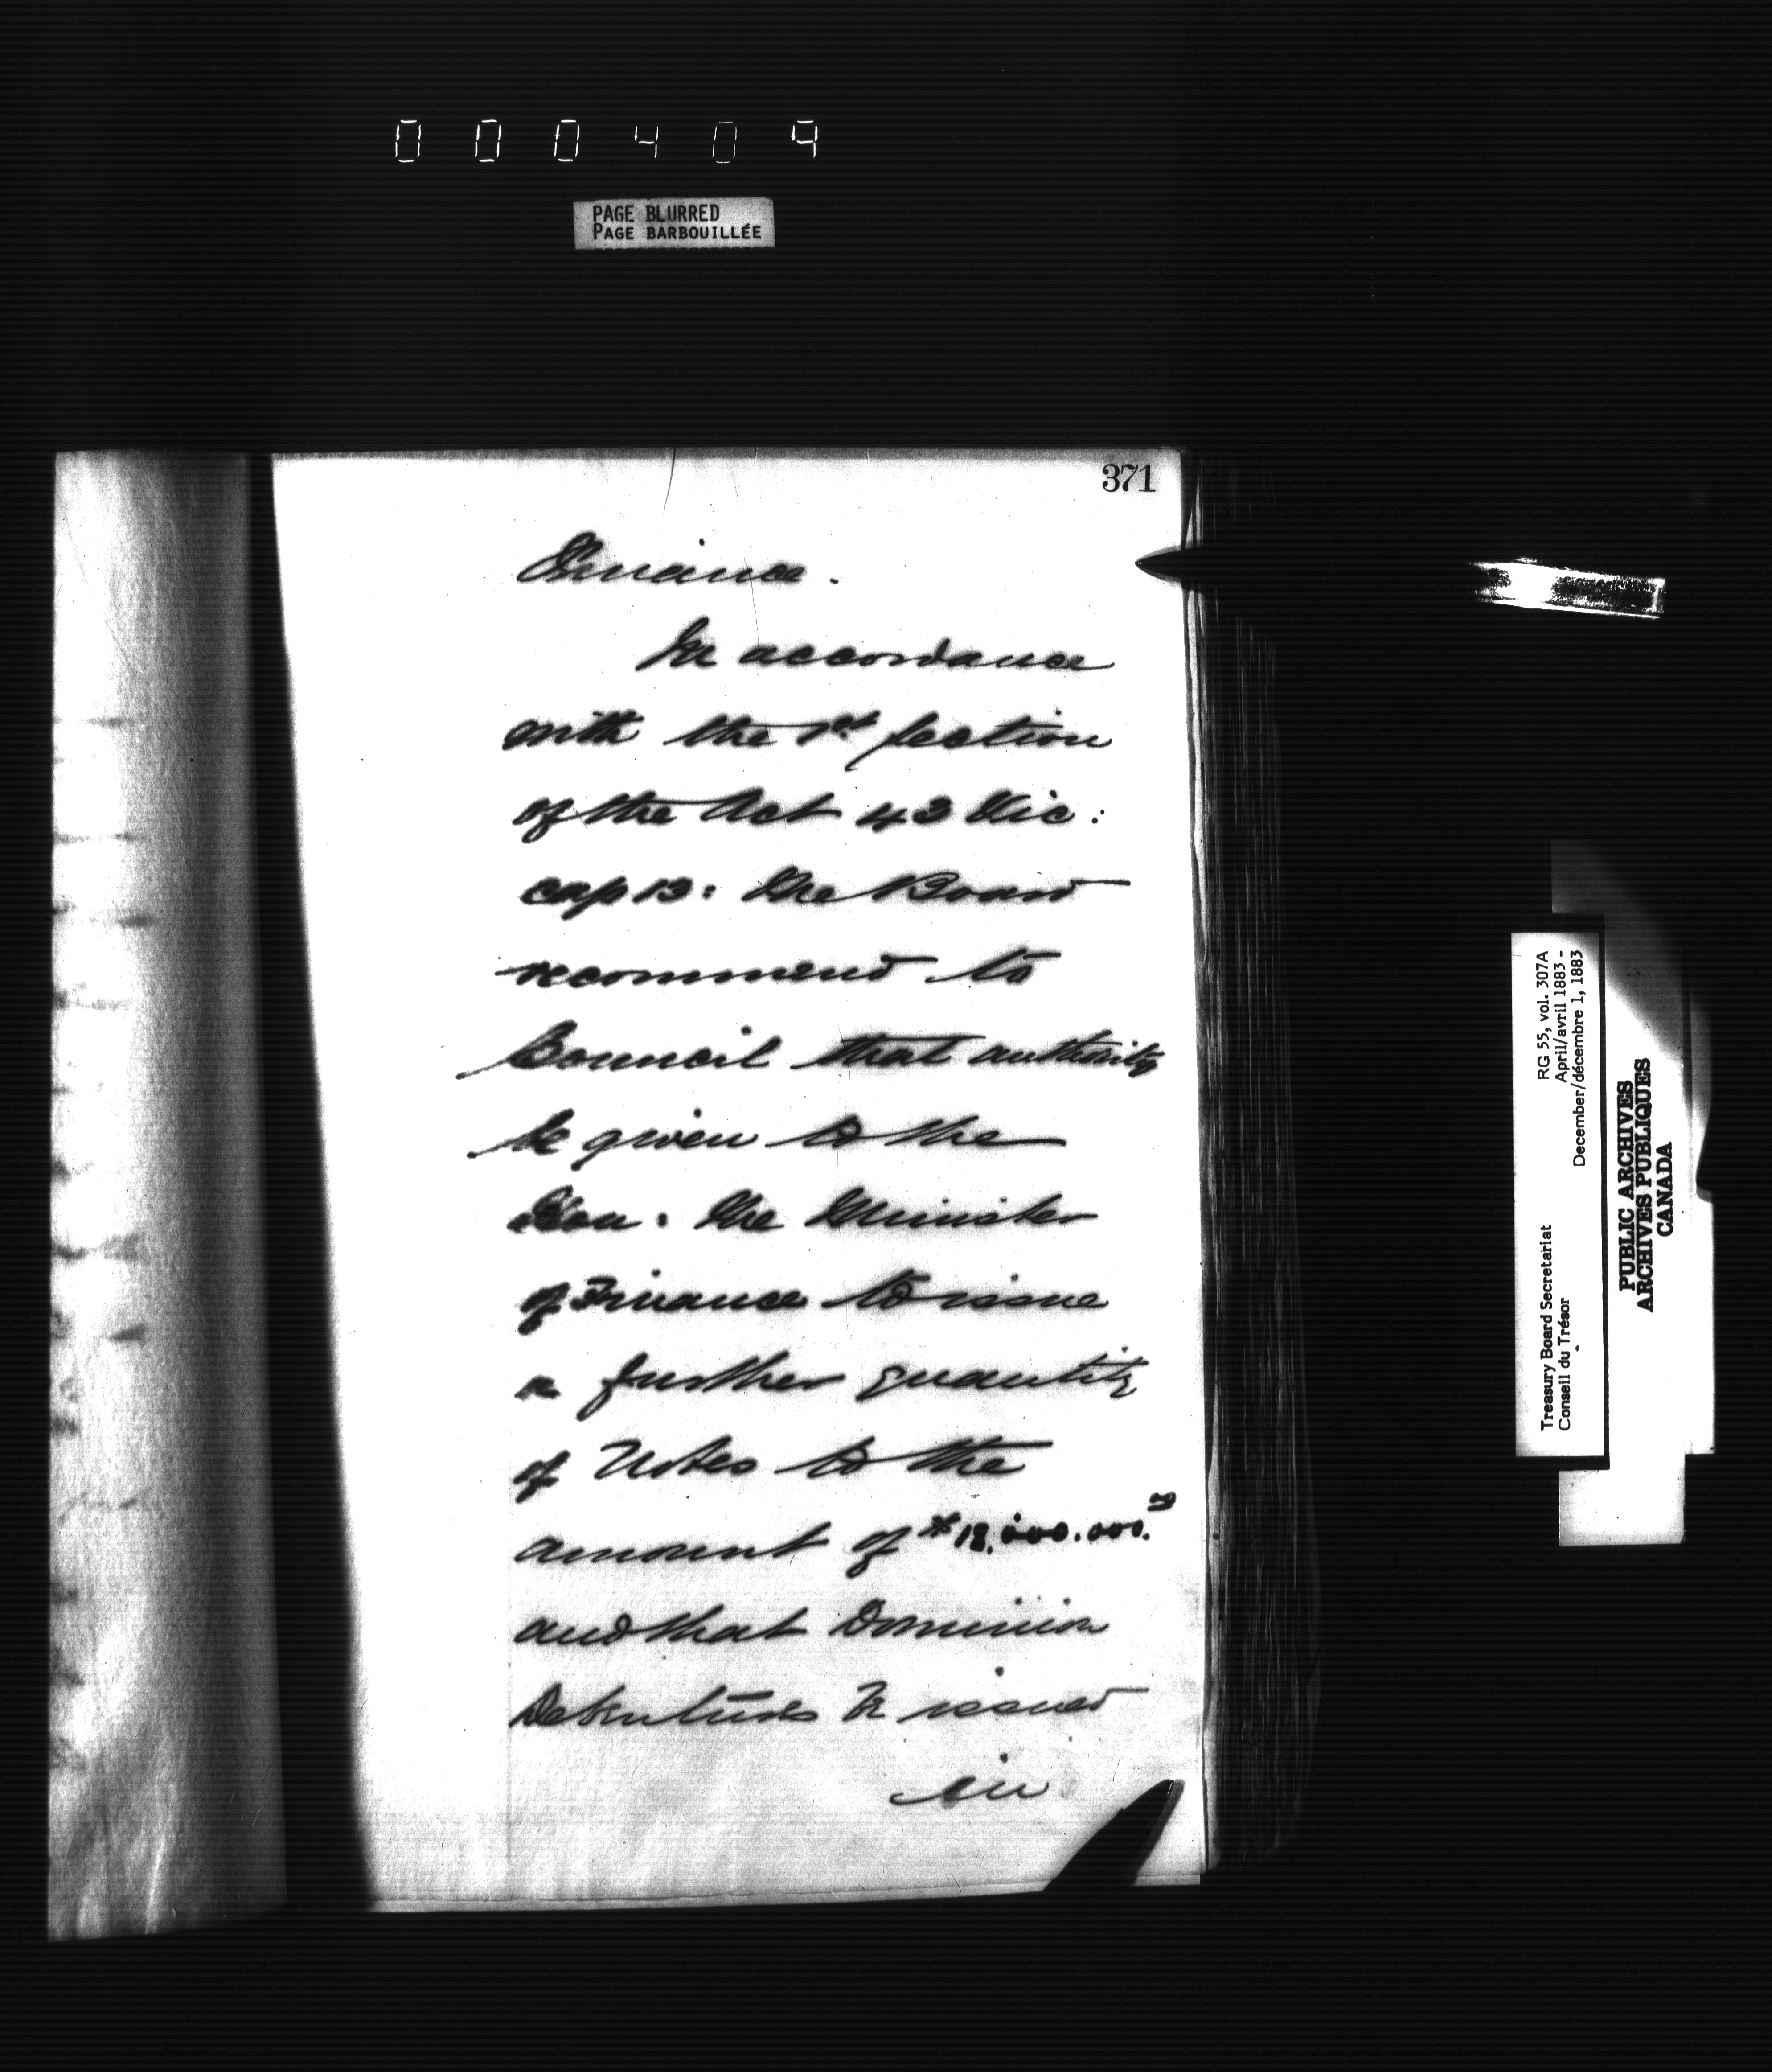 000409
PAGE BLURRED
PAGE BARBOUILLÉE
371
Finance.
In accordance
with the 1st section
of the Act 43 Vic:
cap 13: the Board
recommend to
Council that authority
be given to the
Hon: the Minister
of Finance to issue
a further quantity
of Notes to the
amount of $18.000.000.
and that Dominion
Debentures be issued
in
Treasury Board Secretariat RG 55, vol. 307A
Conseil du Trésor April/avril 1883 -
December/décembre 1, 1883
PUBLIC ARCHIVES
ARCHIVES PUBLIQUES
CANADA